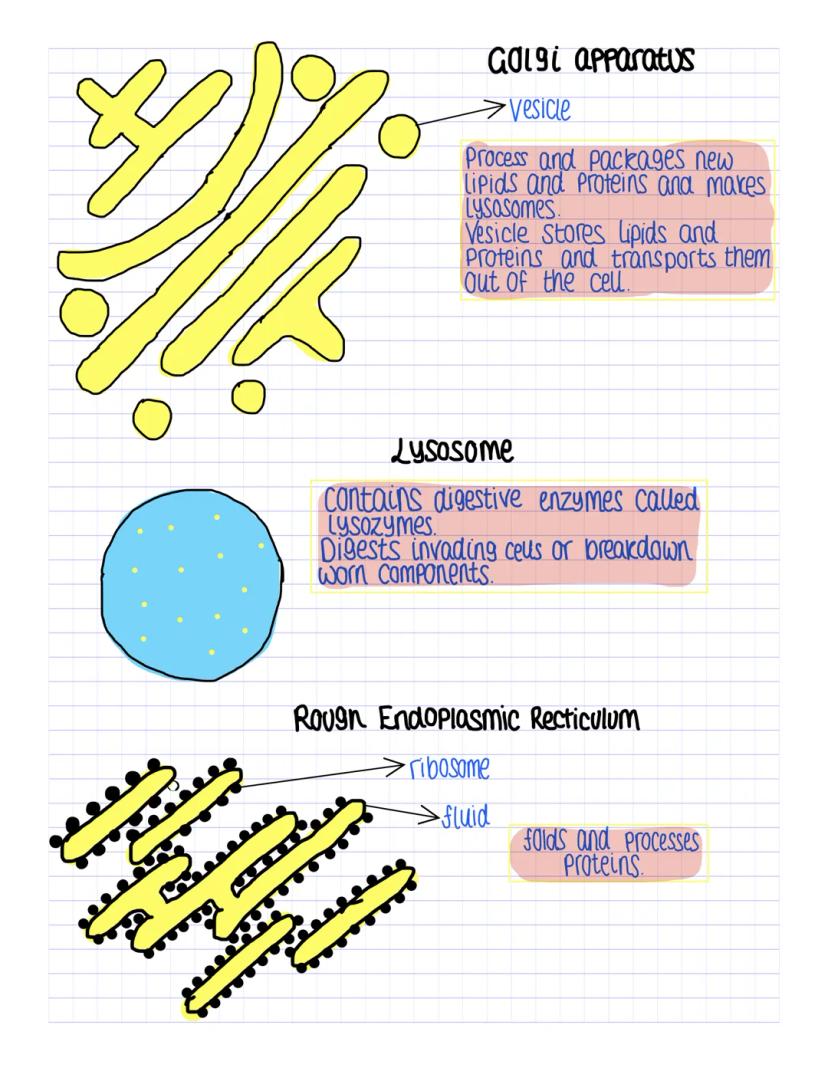 Golgi apparatus
Vesicle
Process and packages new
lipids and proteins and makes
lysosomes.
Vesicle stores lipids and
proteins and transports them
out of the cell.
Lysosome
Contains digestive enzymes called
lysozymes.
Digests invading cells or breakdown
worn components.
Rough Endoplasmic Recticulum
ribosome
fluid
folds and processes
proteins.